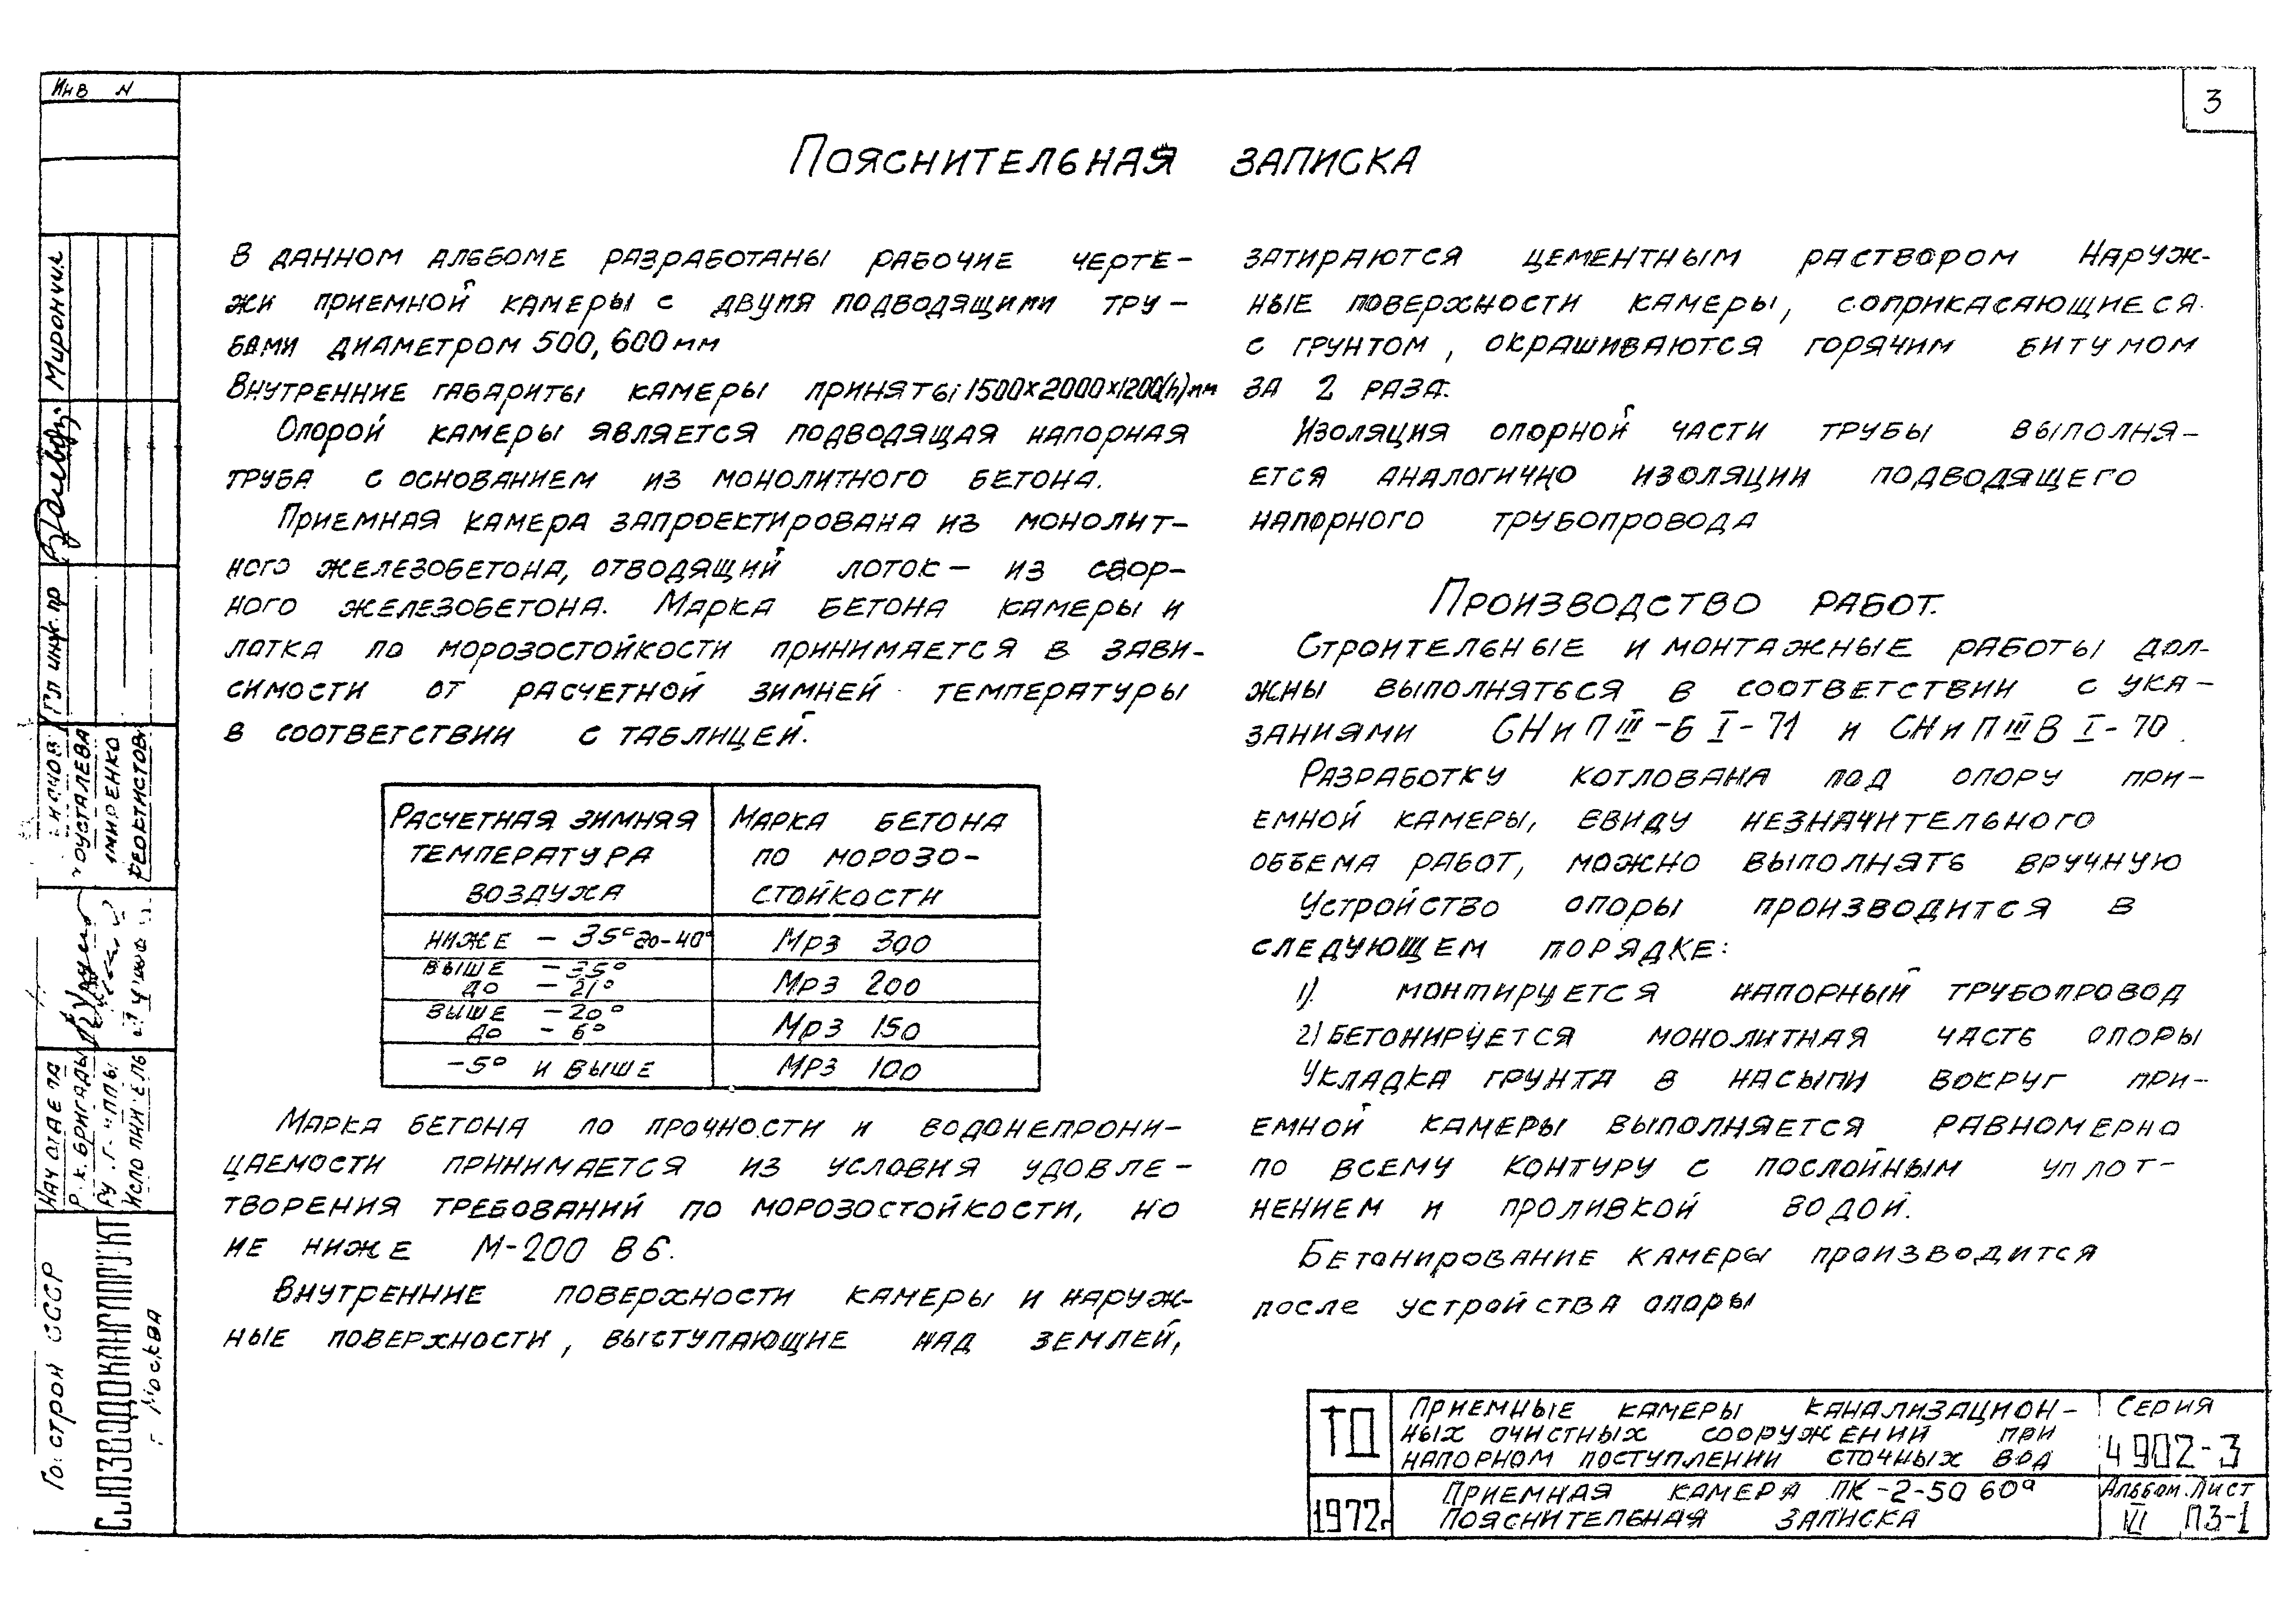 Инв N
3
Пояснительная записка
В данном альбоме разработаны рабочие черте-
жи приемной камеры с двумя подводящими тру-
бами диаметром 500, 600 мм
Внутренние габариты камеры приняты; 1500×2000×1200(h) мм
Опорой камеры является подводящая напорная
труба с основанием из монолитного бетона.
Приемная камера запроектирована из монолит-
ного железобетона, отводящий лоток - из сбор-
ного железобетона. Марка бетона камеры и
лотка по морозостойкости принимается в зави-
симости от расчетной зимней температуры
в соответствии с таблицей.
Расчетная зимняя температура воздуха
Марка бетона по морозо-стойкости
ниже -35° до -40° Мрз 300
выше -35° до -21° Мрз 200
выше -20° до -6° Мрз 150
-5° и выше Мрз 100
Марка бетона по прочности и водонепрони-
цаемости принимается из условия удовле-
творения требований по морозостойкости, но
не ниже М-200 В6.
Внутренние поверхности камеры и наруж-
ные поверхности, выступающие над землей,
затираются цементным раствором Наруж-
ные поверхности камеры, соприкасающиеся
с грунтом, окрашиваются горячим битумом
за 2 раза.
Изоляция опорной части трубы выполня-
ется аналогично изоляции подводящего
напорного трубопровода
Производство работ.
Строительные и монтажные работы дол-
жны выполняться в соответствии с ука-
заниями СНиП III-Б I-71 и СНиП III В I-70.
Разработку котлована под опору при-
емной камеры, ввиду незначительного
объема работ, можно выполнять вручную
Устройство опоры производится в
следующем порядке:
1). монтируется напорный трубопровод
2) бетонируется монолитная часть опоры
Укладка грунта в насыпи вокруг при-
емной камеры выполняется равномерно
по всему контуру с послойным уплот-
нением и проливкой водой.
Бетонирование камеры производится
после устройства опоры
Мирончик
Гл инж. пр
Нач отдела
Р.к. бригады
Исполнитель
Госстрой СССР
Союзводоканалпроект
г Москва
ТД
Приемные камеры канализацион-
ных очистных сооружений при
напорном поступлении сточных вод
Серия
4 902-3
1972г
Приемная камера ПК-2-50 60а
Пояснительная записка
Альбом Лист
VI ПЗ-1